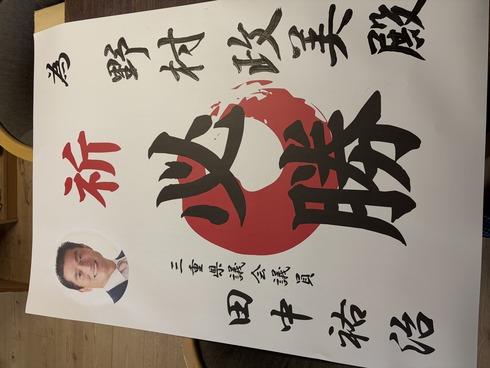 為 野村政美殿
祈
必勝
三重県議会議員
田中祐治